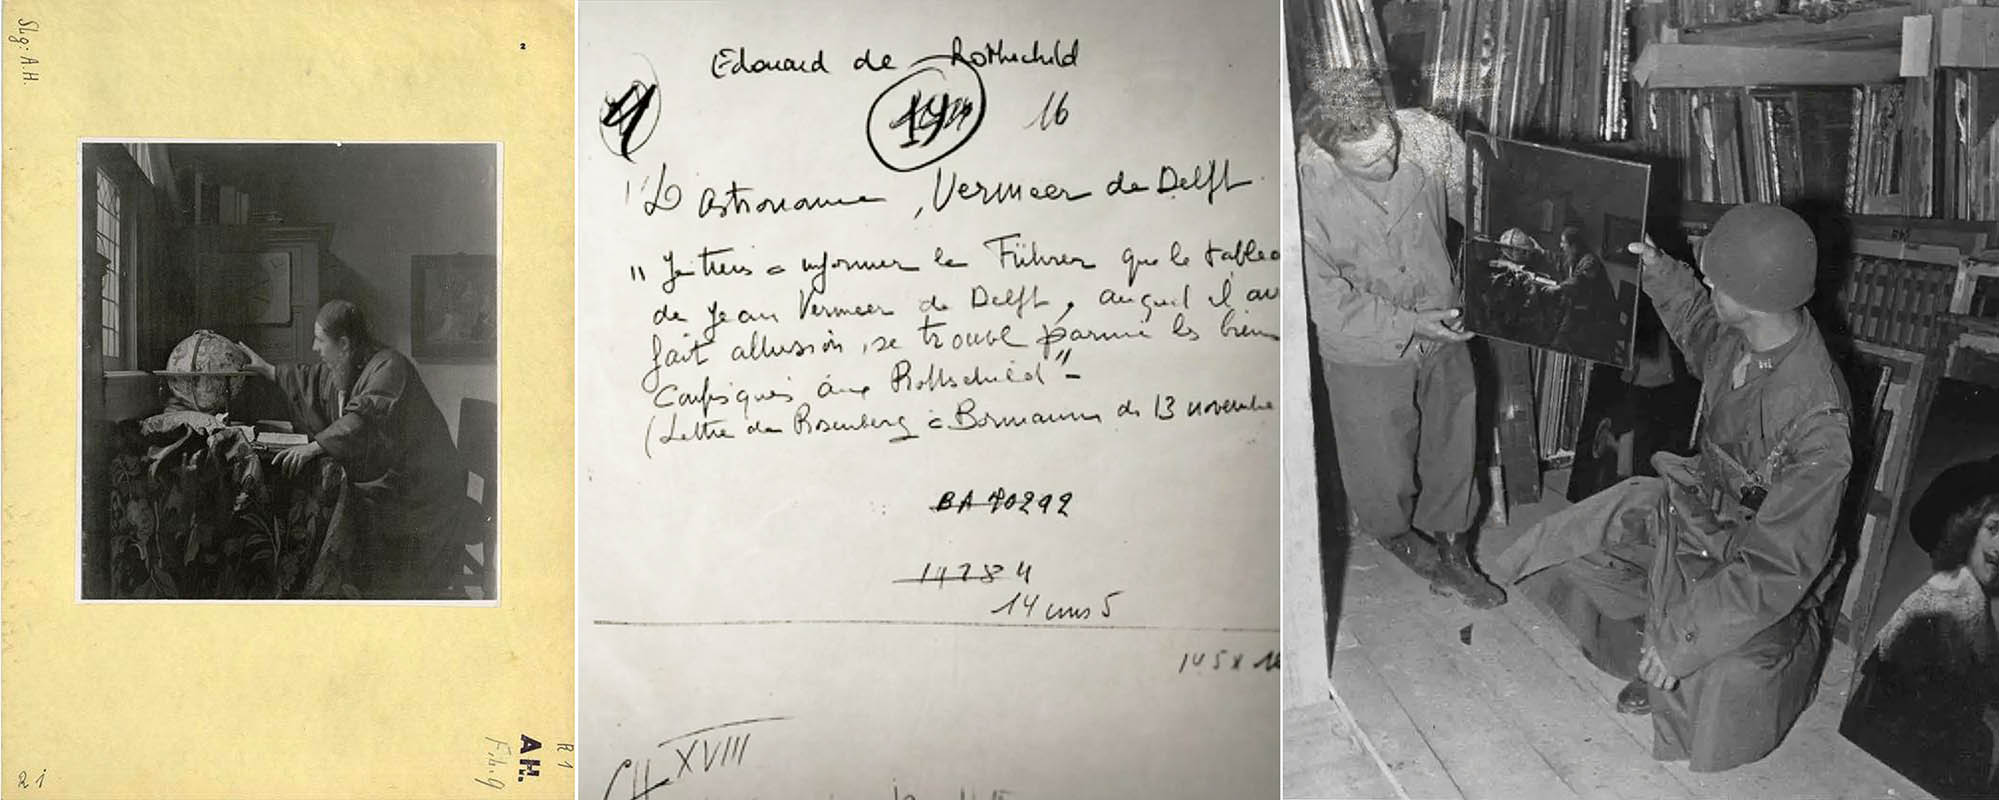 Slg: A.H.
2
R 1
A.H.
Fih. 9
21
Edouard de Rothschild
4
19
16
"L'Astronome, Vermeer de Delft
"Je tiens à informer le Führer que le tablea
de Jean Vermeer de Delft, auquel il av
fait allusion, se trouve parmi les bien
confisqués aux Rothschild" -
(Lettre de Rosenberg à Bormann du 13 novembre
BA 70292
14784
14 cms 5
145 x
CH XVIII